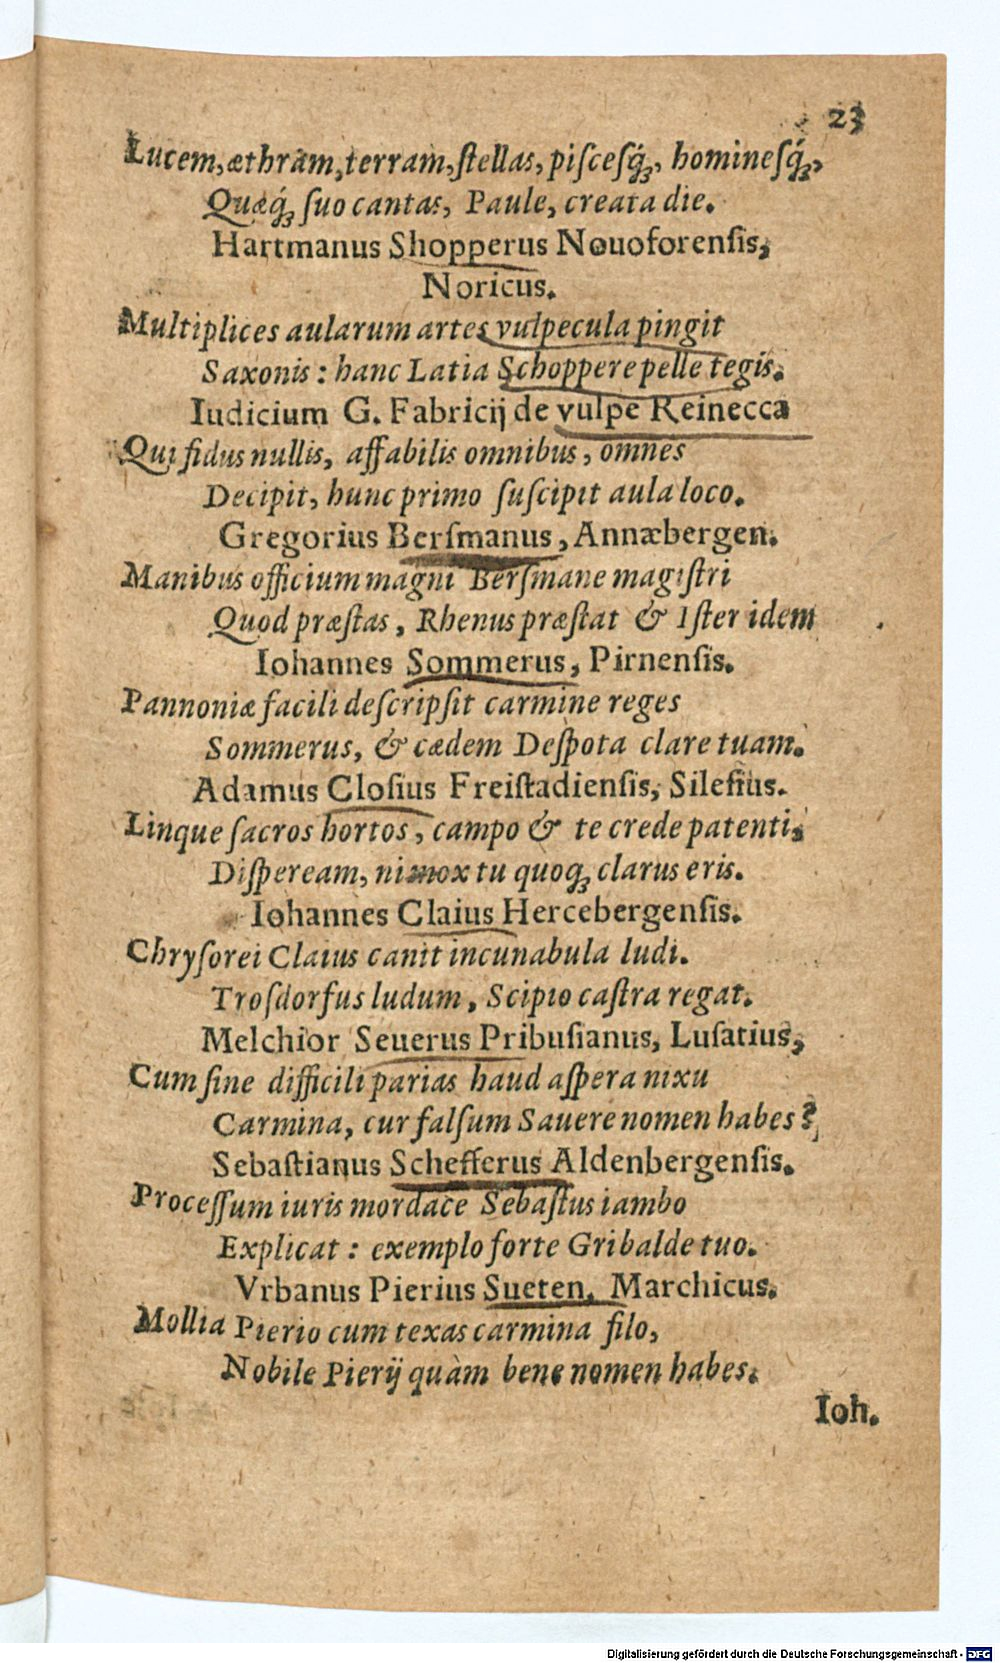 23
Lucem, æthram, terram, ſtellas, piſceſq́ꝫ, homineſq́ꝫ,
Quæq́ꝫ ſuo cantas, Paule, creata die.
Hartmanus Shopperus Nouoforenſis,
Noricus.
Multiplices aularum artes vulpecula pingit
Saxonis: hanc Latia Schoppere pelle tegis.
Iudicium G. Fabricij de vulpe Reinecca
Qui fidus nullis, affabilis omnibus, omnes
Decipit, hunc primo ſuſcipit aula loco.
Gregorius Berſmanus, Annæbergen.
Manibus officium magni Berſmane magiſtri
Quod præſtas, Rhenus præſtat & Iſter idem
Iohannes Sommerus, Pirnenſis.
Pannoniæ facili deſcripſit carmine reges
Sommerus, & cædem Deſpota clare tuam.
Adamus Cloſius Freiſtadienſis, Sileſius.
Linque ſacros hortos, campo & te crede patenti,
Diſpeream, ni mox tu quoqꝫ clarus eris.
Iohannes Claius Hercebergenſis.
Chryſorei Claius canit incunabula ludi.
Troſdorfus ludum, Scipio caſtra regat.
Melchior Seuerus Pribuſianus, Luſatius,
Cum ſine difficili parias haud aſpera nixu
Carmina, cur falſum Sauere nomen habes?
Sebaſtianus Schefferus Aldenbergenſis.
Proceſſum iuris mordace Sebaſtus iambo
Explicat: exemplo forte Gribalde tuo.
Vrbanus Pierius Sueten. Marchicus.
Mollia Pierio cum texas carmina filo,
Nobile Pierij quàm bene nomen habes.
Ioh.
Digitalisierung gefördert durch die Deutsche Forschungsgemeinschaft - DFG